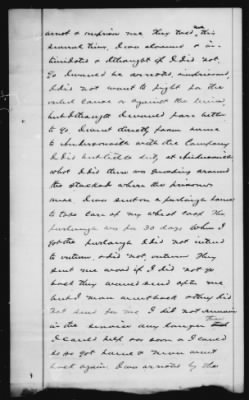 arrest & imprison me they told me this
several times. I was alarmed & in-
timidated & thought if I did not
go I would be arrested, imprisoned,
I did not want to fight for the
rebel cause or against the Union,
but I thought I would fare better
to go. I went directly from
to Andersonville with the Company
I did but little duty, at Andersonville
what I did there was guarding around
the stockade where the prisoners
were. I was sent on a furlough home
to take care of my wheat crop. The
furlough was for 30 days. When I
got the furlough I did not intend
to return, & did not return. They
sent me word if I did not go
back they would send after me
but I never went back & they did
not send for me. I did not remain
in the service any longer than
I could help & as soon as I could
do so got home & never went
back again. I was arrested by the